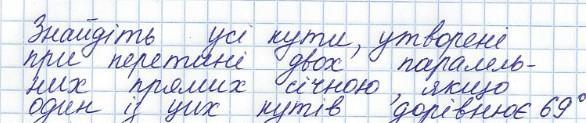 Знайдіть усі кути, утворені
при перетині двох паралель-
них прямих січною, якщо
один із цих кутів дорівнює 69°